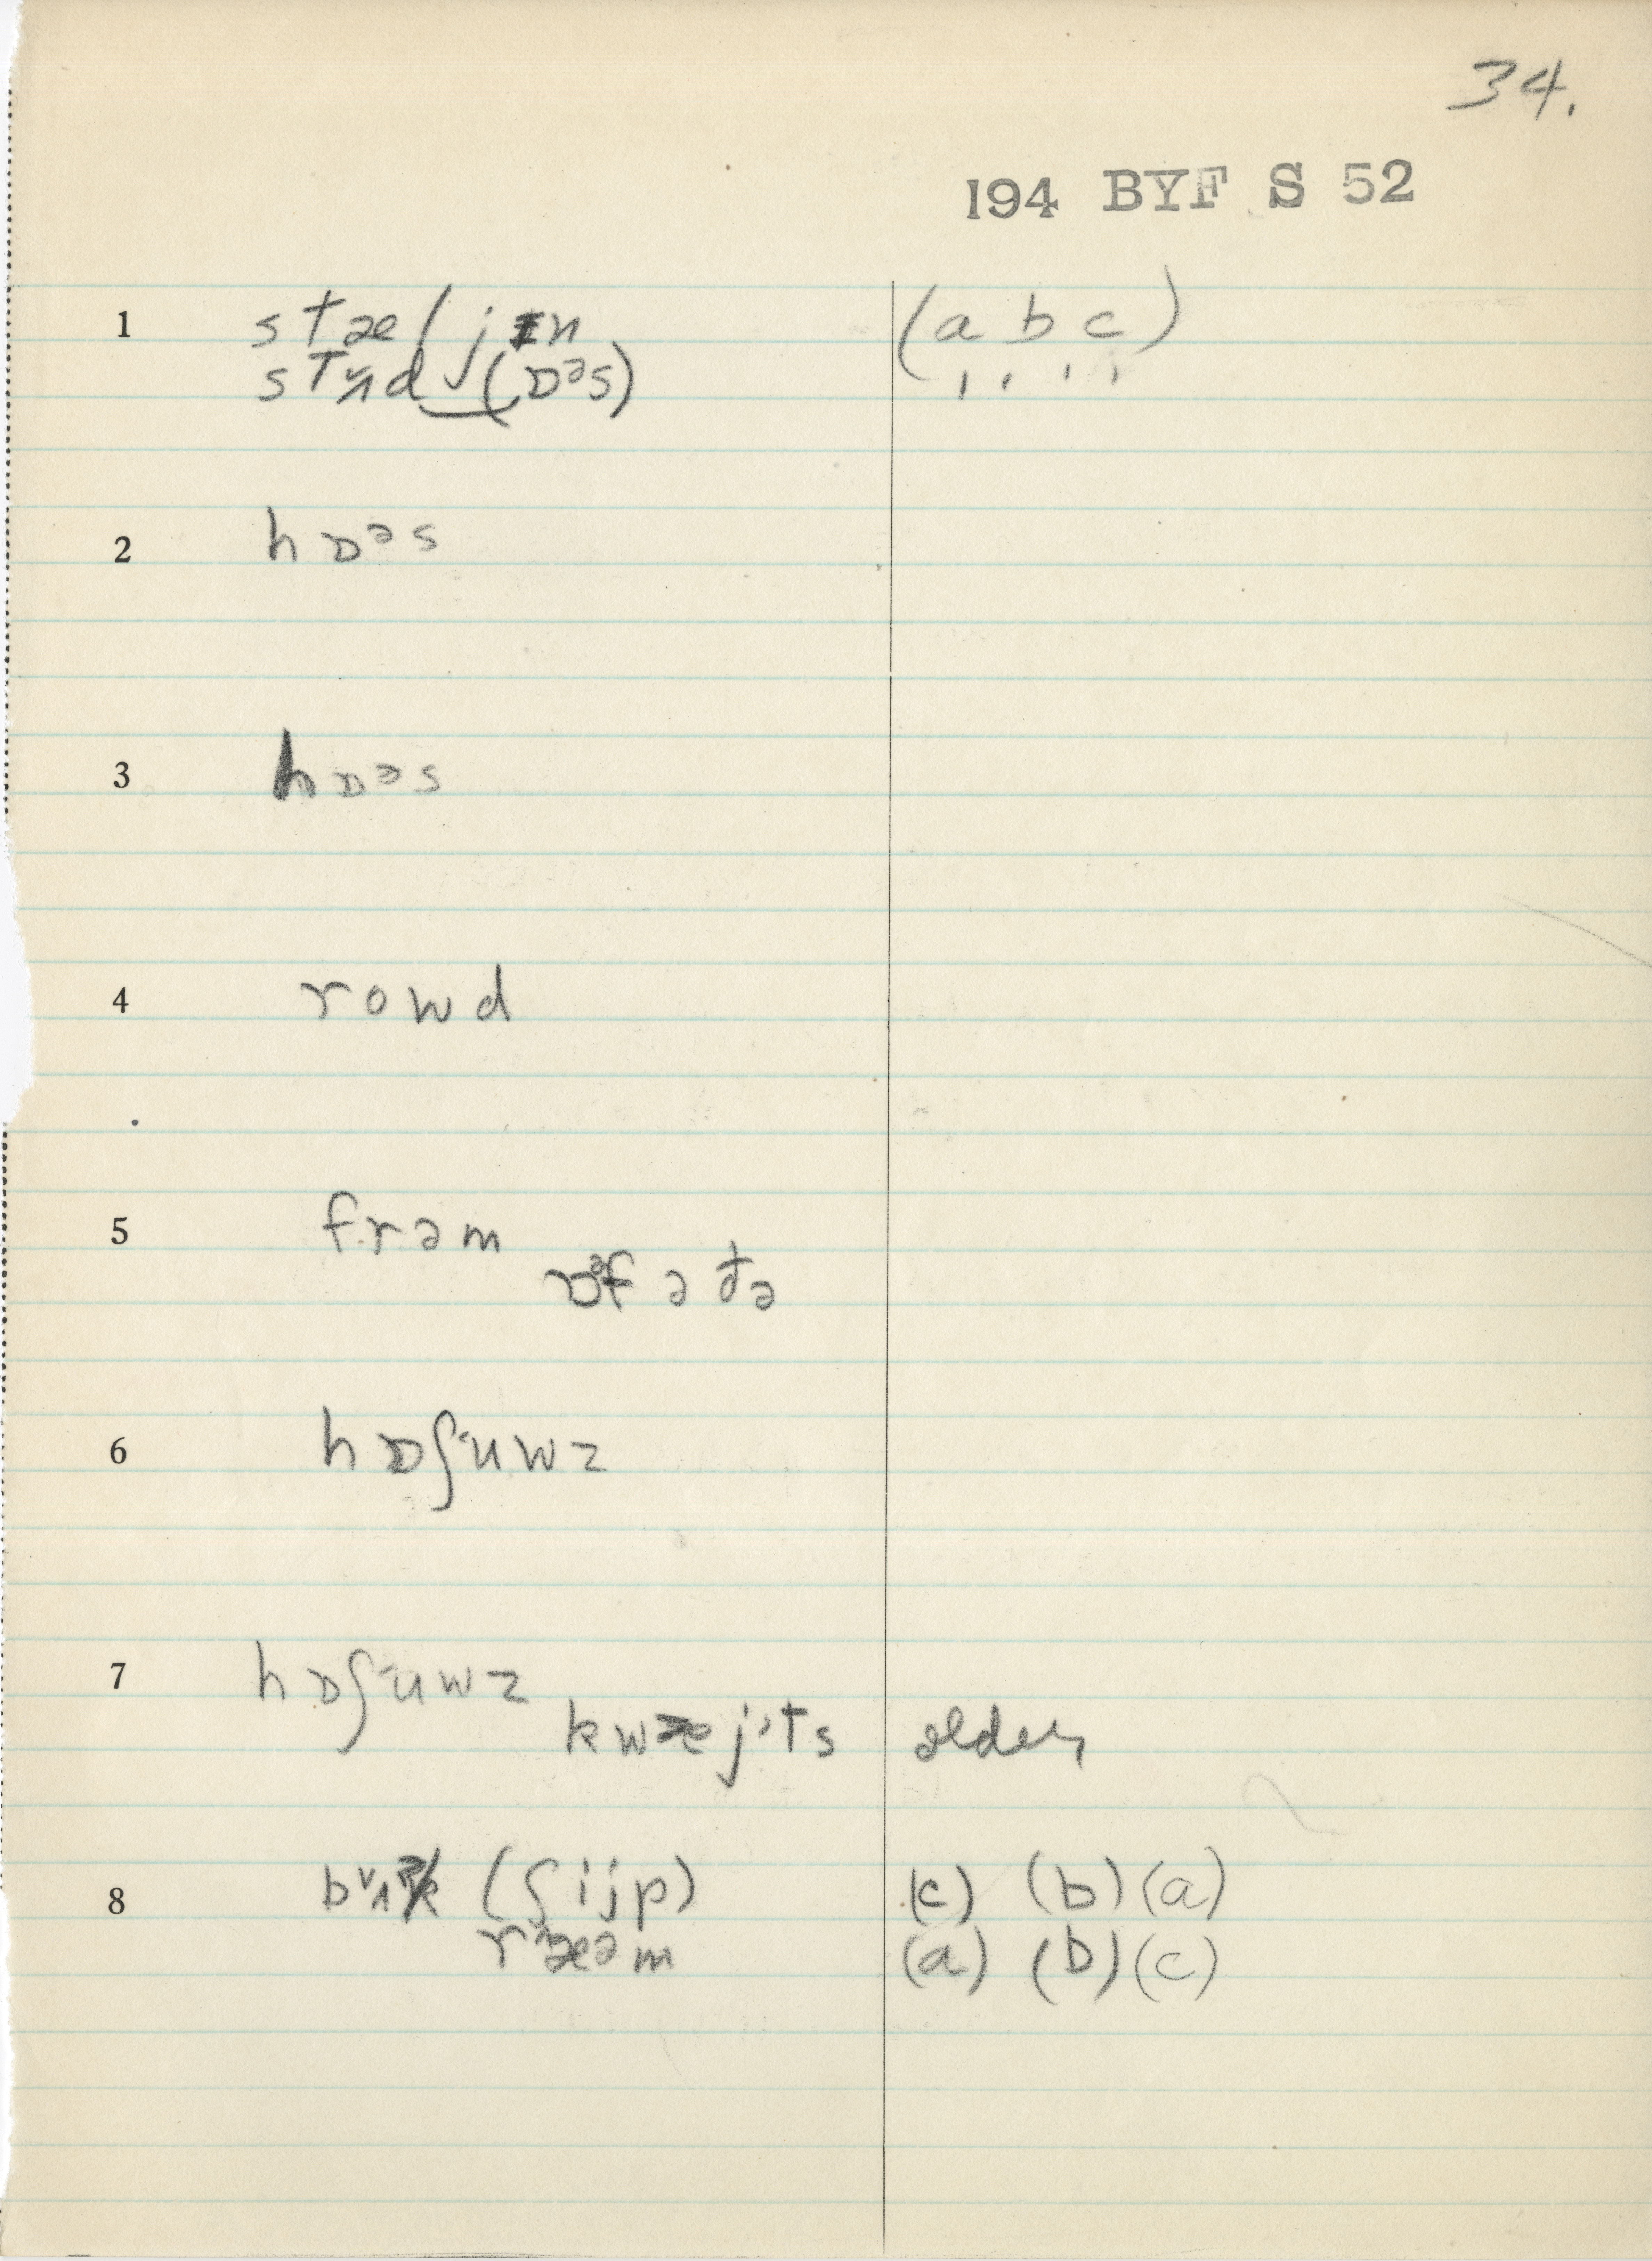 34.
194 BYF S 52
1 stæljɪn (a b c)
stʌ˅nd (ɒᵊs)
2 hɒᵊs
3 hɒᵊs
4 rowd
5 frəm
ɒᵊf ə ðə
6 hɒʃ˂uwz
7 hɒʃ˂uwz
kwæj˃ts older
8 b˅ʌk (ʃijp) (c) (b) (a)
r˄æəm (a) (b) (c)